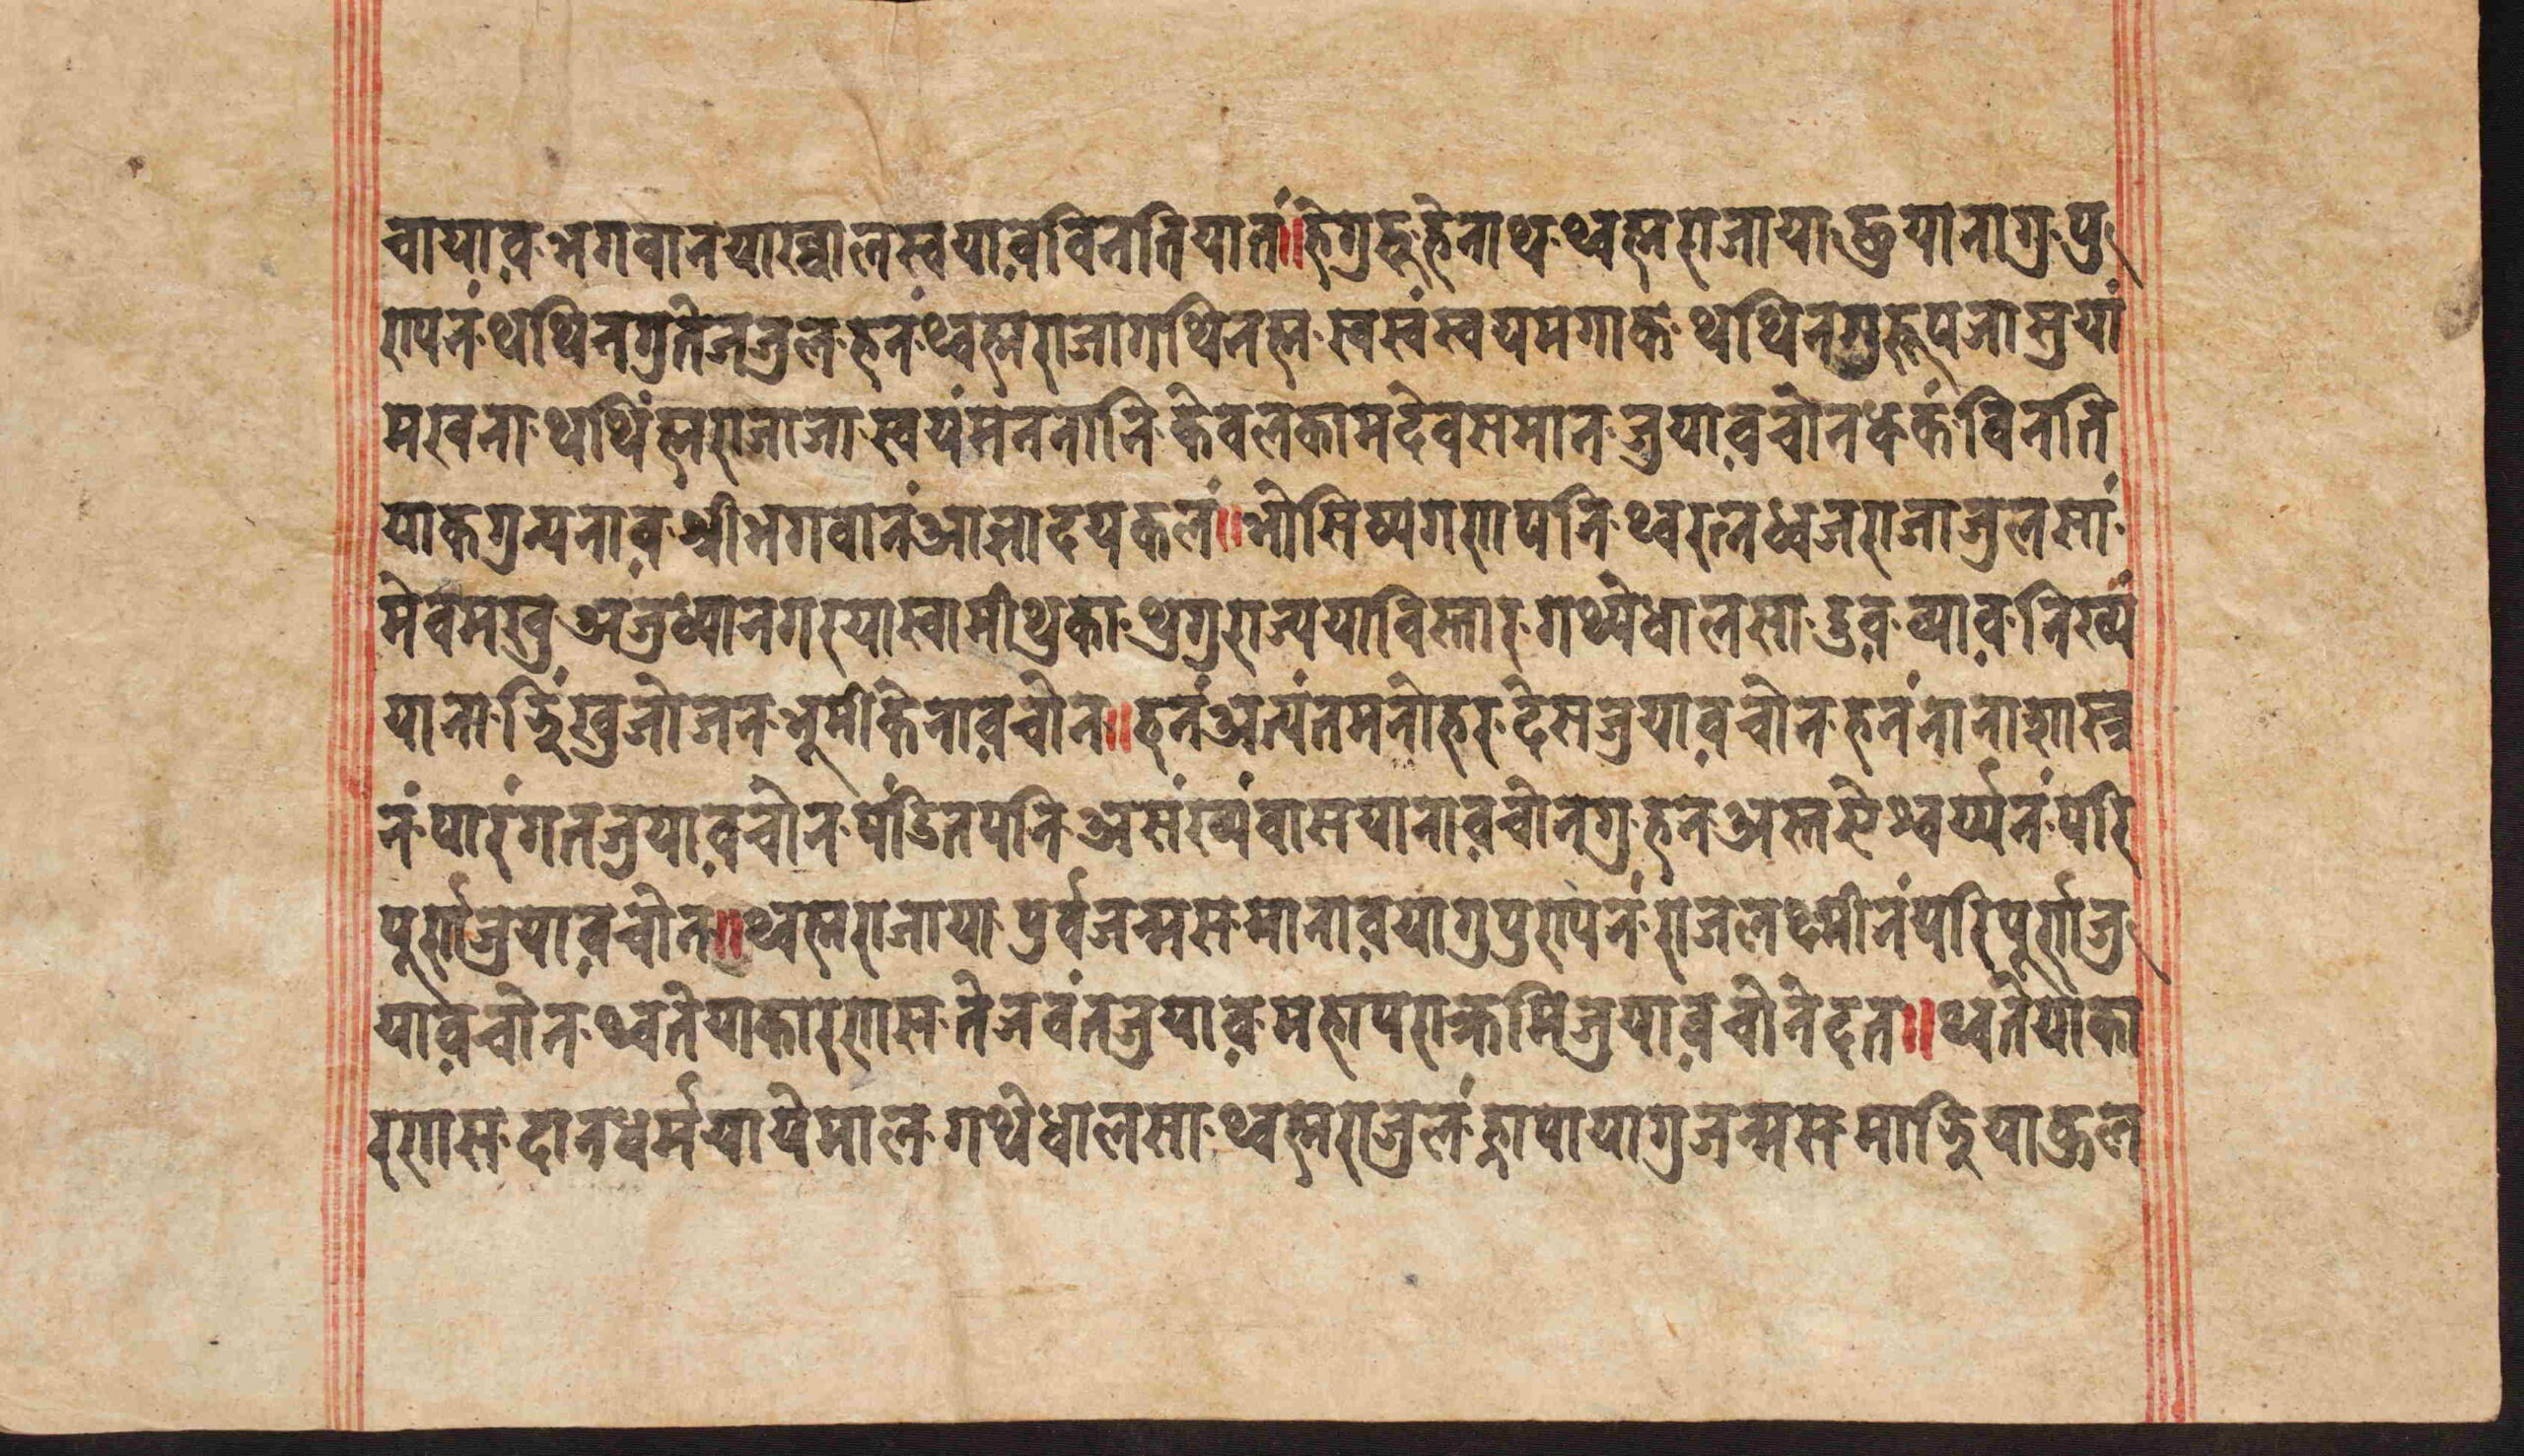 चायाव़ भगवानयाख्वालस्वयाव़ विनतियातं॥ हेगुरुहेनाथ थ्वह्मराजाया छुयानागु पु
रापनं थथिनगुतेजजुल हनं थ्वह्मराजागथिनह्म स्वस्वंस्वयमगाक थथिनगुरूपजामुयां
मखना थथिंह्मराजाजा स्वयंमंननानि केवलकामदेवसमान जुयाव़चोनधकं विनति
याकगुन्यनाव़ श्रीभगवानंआज्ञादयकलं॥ भोसिष्यगणपनि थ्वरत्नध्वजराजाजुलसां
मेवमखु अजुध्यानगरयास्वामीथुका थुगुराज्ययाविस्तार गथ्येधालसा डुव़ व्याव़ निख्यं
याना झिंखुजोजन भूमीकेनाव़चोन॥ हनंअत्यंतमनोहर देसजुयाव़चोन हनंनानाशास्त्र
नं पारंगतजुयाव़चोन पंडितपनि असंख्यंवासयानाव़चोनगु हनं अस्तऐश्वर्य्यनं परि
पूर्णजुयाव़चोन॥ थ्वह्मराजाया पुर्वजन्मस मानाव़यागुपुरापनं राजलक्ष्मीनंपरिपूर्णजु
याव़चोन थ्वतेयाकारणस तेजवंतजुयाव़ महापराक्रमिजुयाव़चोनेदत॥ थ्वतेयाका
रणस दानधर्मयायेमाल गथेधालसा थ्वह्मराजुलं ह्नापायागुजन्मस माझियाकुल